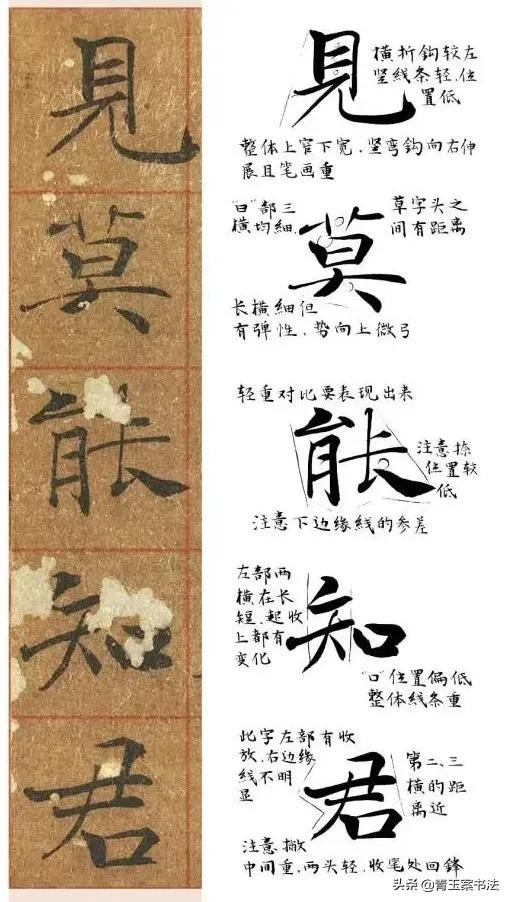 見
莫
能
知
君
見
横折鈎较左
竖线条轻,位
置低
整体上窄下宽,竖弯鈎向右伸
展且笔画重
"日"部三
横均細
莫
草字头之
间有距离
长横細但
有弹性,势向上微弓
轻重对比要表现出来
能
注意捺
位置较
低
注意下边缘线的参差
左部两
横在长
短、起收
上都有
变化
知
"口"位置偏低
整体线条重
此字左部有收
放,右边缘
线不明
显
君
第二、三
横的距
离近
注意撇
中间重,两头轻,收笔处回鋒
头条 @青玉案书法